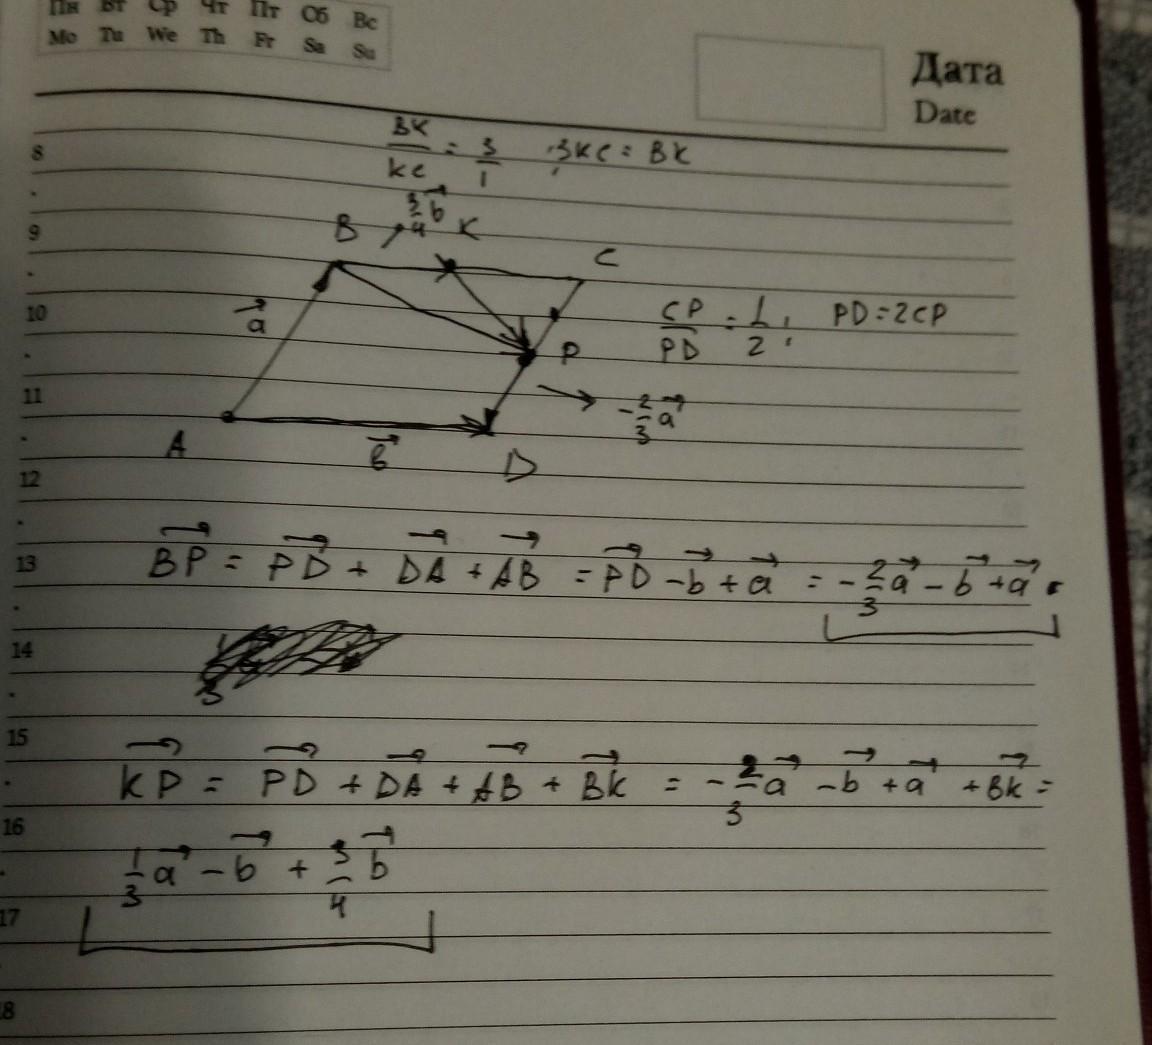 Пн Вт Ср Чт Пт Сб Вс
Mo Tu We Th Fr Sa Su
Дата
Date
BK/KC = 3/1 ; 3KC = BK
8
3/4 b⃗
9
B K C
10
a⃗
CP/PD = 1/2 ; PD = 2CP
P
11
-2/3 a⃗
A b⃗ D
12
13
BP⃗ = PD⃗ + DA⃗ + AB⃗ = PD⃗ - b⃗ + a⃗ = -2/3 a⃗ - b⃗ + a⃗
14
3
15
KP⃗ = PD⃗ + DA⃗ + AB⃗ + BK⃗ = -2/3 a⃗ - b⃗ + a⃗ + BK⃗ =
16
1/3 a⃗ - b⃗ + 3/4 b⃗
17
8